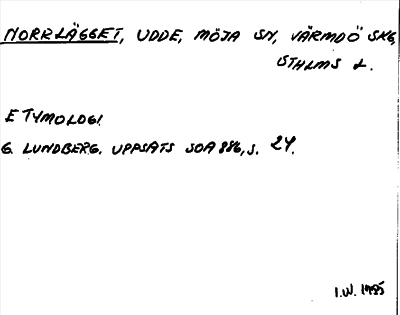 NORRLÄGGET, UDDE, MÖJA SN, VÄRMDÖ SKG,
STHLMS L.
ETYMOLOGI
G. LUNDBERG. UPPSATS SOA 886, S. 24.
I.W. 1985